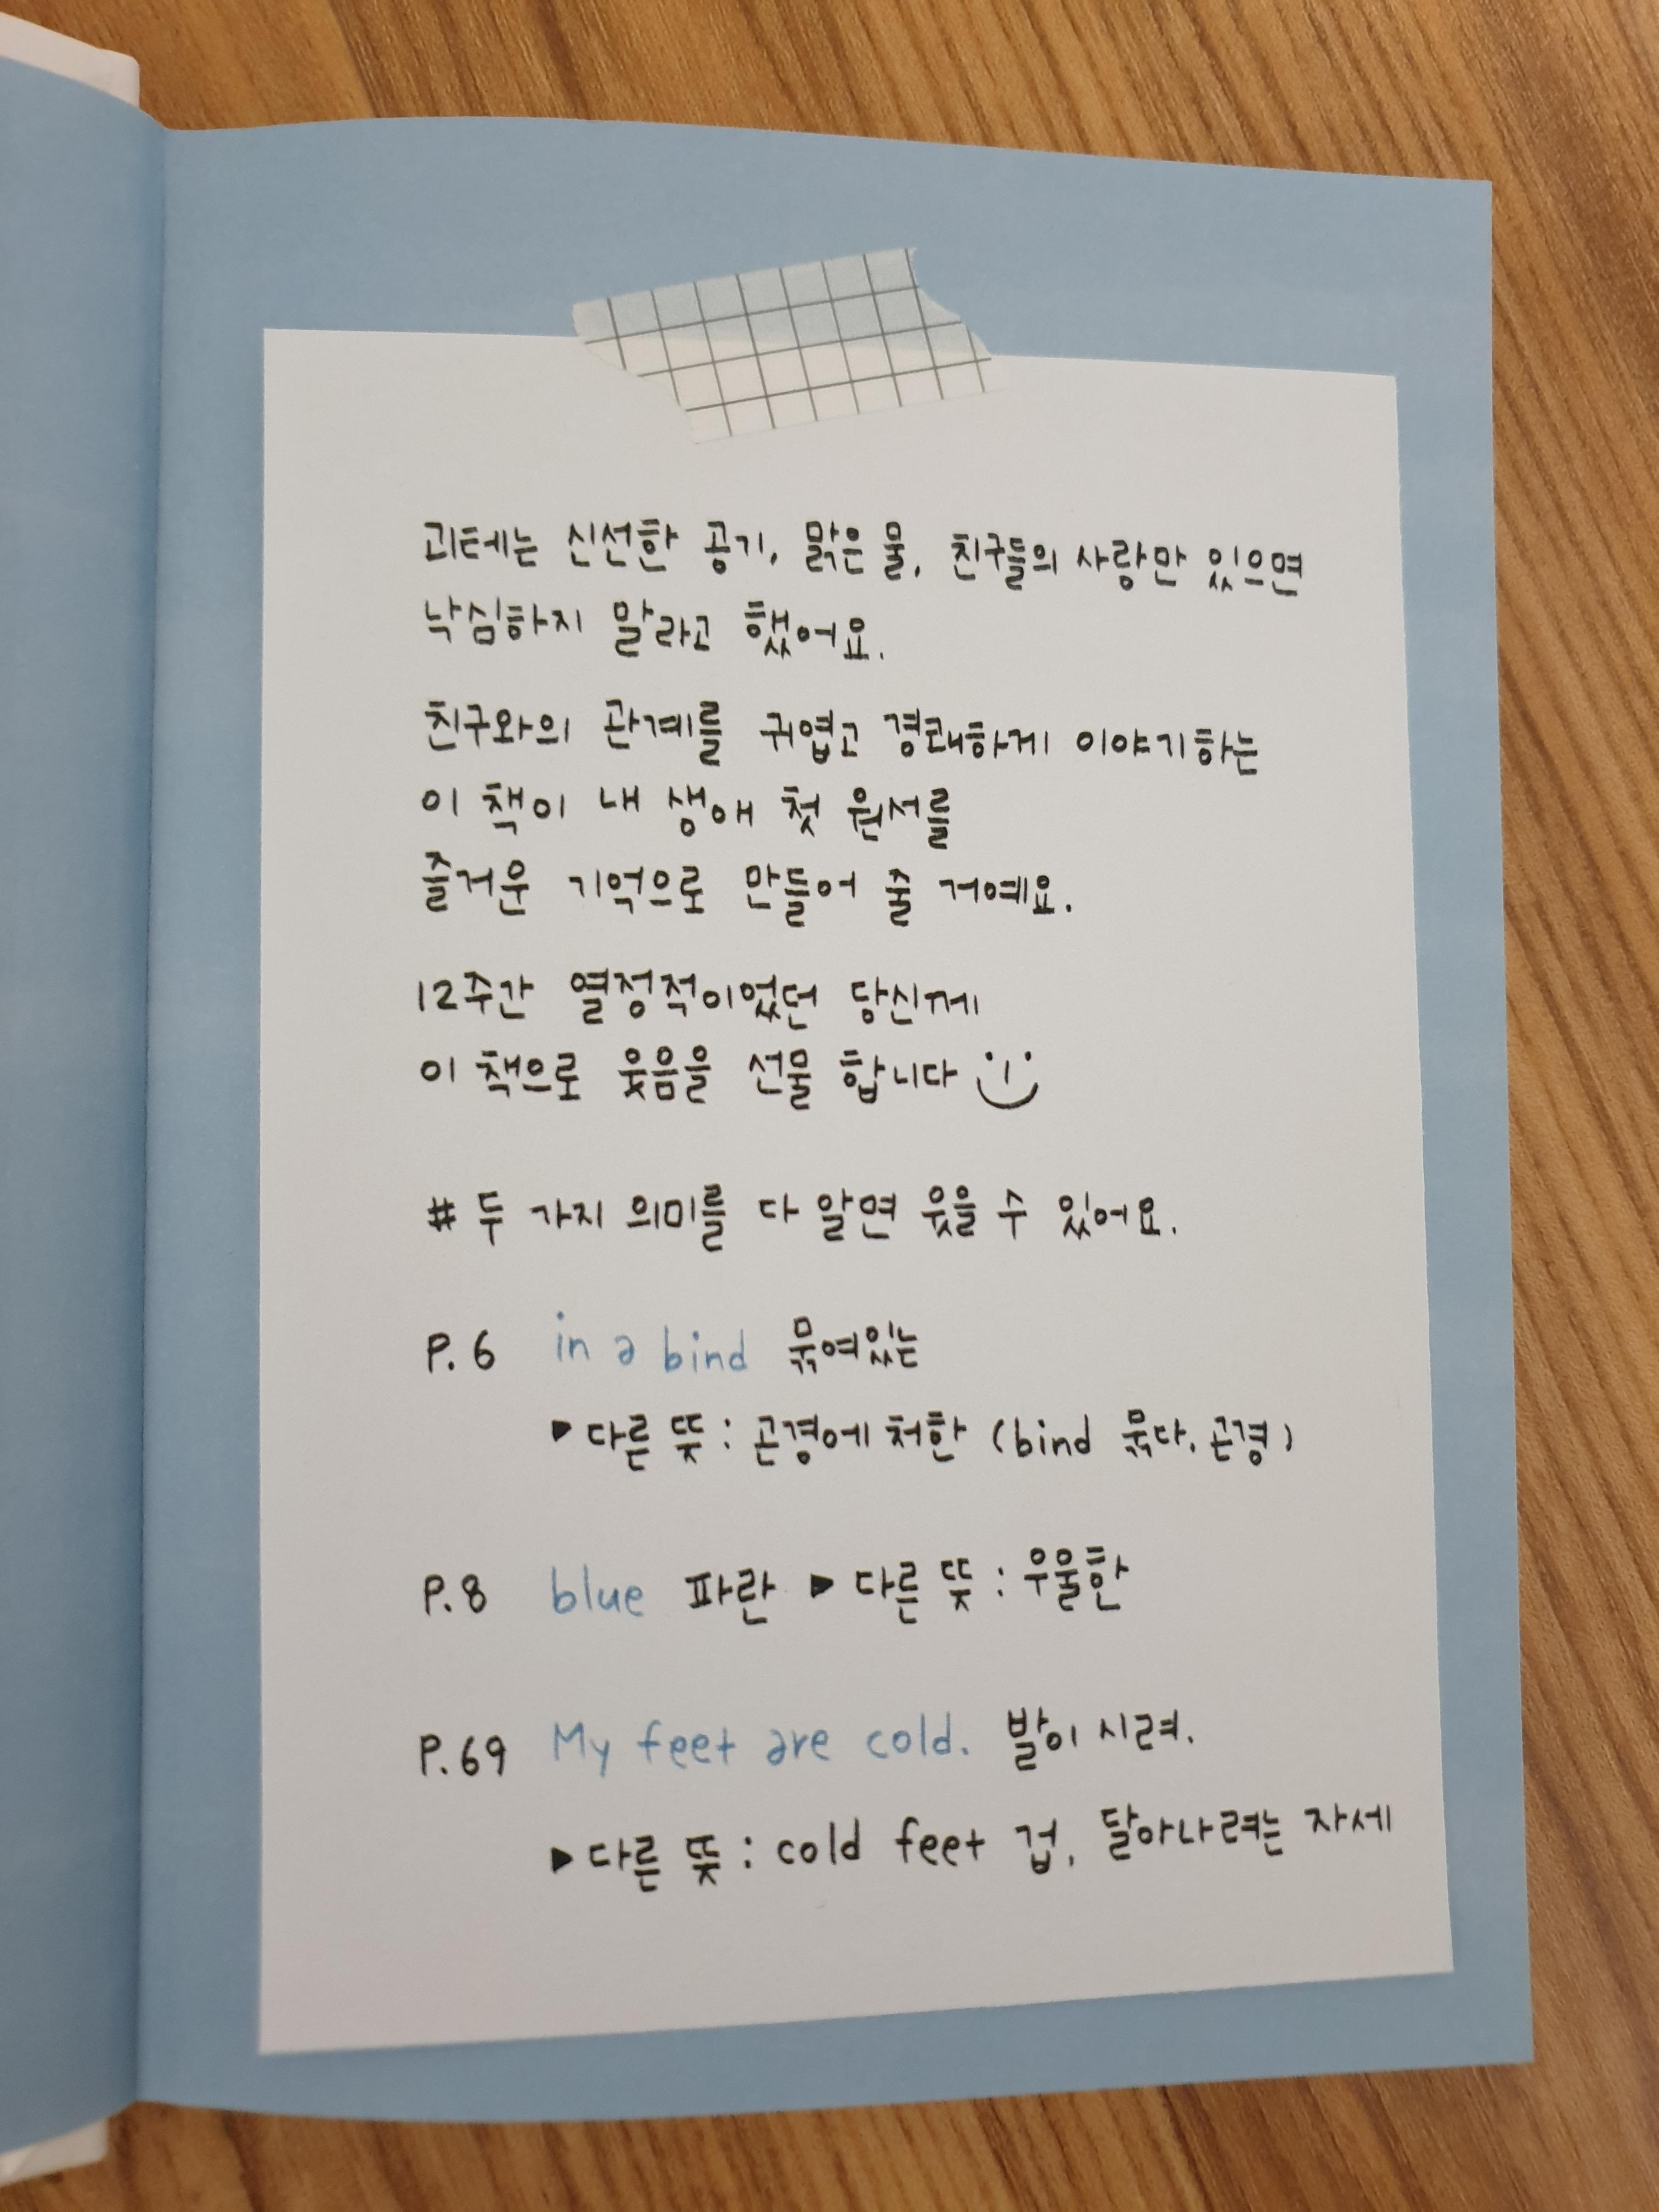 괴테는 신선한 공기, 맑은 물, 친구들의 사랑만 있으면
낙심하지 말라고 했어요.
친구와의 관계를 귀엽고 경쾌하게 이야기하는
이 책이 내 생애 첫 원서를
즐거운 기억으로 만들어 줄 거예요.
12주간 열정적이었던 당신께
이 책으로 웃음을 선물 합니다
# 두 가지 의미를 다 알면 웃을 수 있어요.
P.6 in a bind 묶여있는
▶ 다른 뜻 : 곤경에 처한 (bind 묶다, 곤경)
P.8 blue 파란 ▶ 다른 뜻 : 우울한
P.69 My feet are cold. 발이 시려.
▶ 다른 뜻 : cold feet 겁, 달아나려는 자세